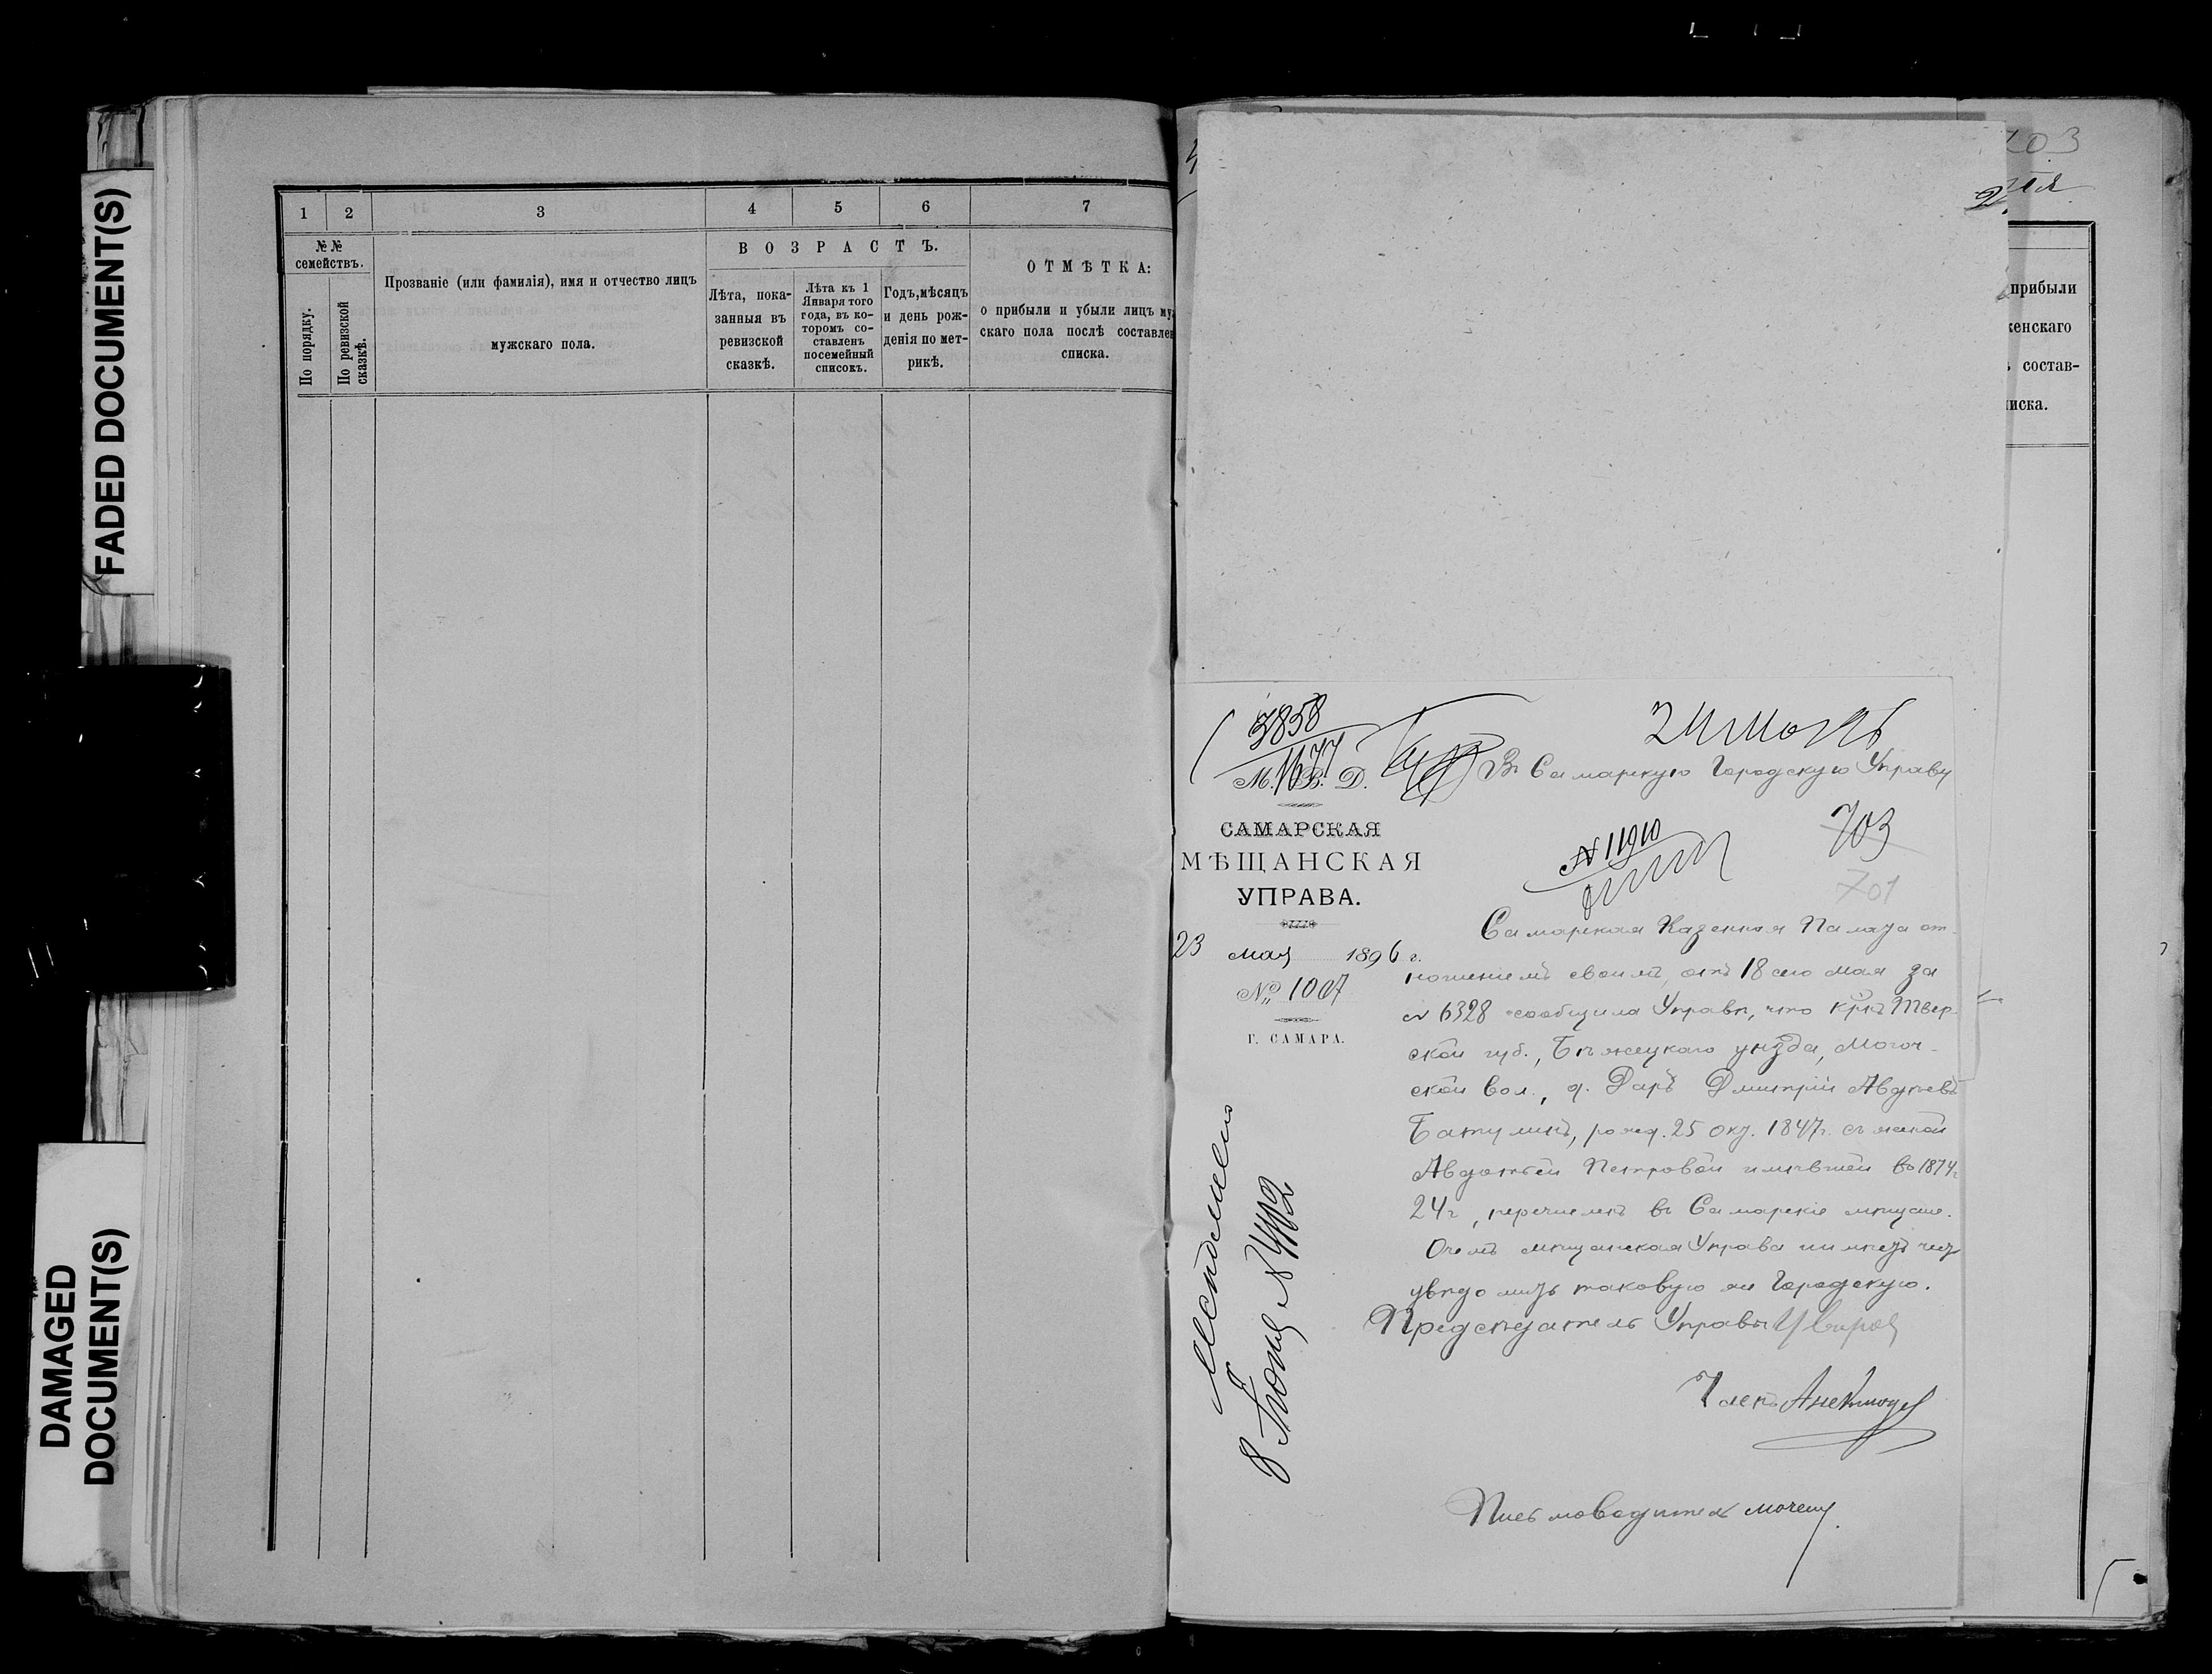 FADED DOCUMENT(S)
DAMAGED
DOCUMENT(S)
1 2 3 4 5 6 7
№ №
семействъ.
По порядку.
По ревизской
сказкѣ.
Прозваніе (или фамилія), имя и отчество лицъ
мужскаго пола.
ВОЗРАСТЪ.
Лѣта, пока-
занныя въ
ревизской
сказкѣ.
Лѣта къ 1
Января того
года, въ ко-
торомъ со-
ставленъ
посемейный
списокъ.
Годъ, мѣсяцъ
и день рож-
денія по мет-
рикѣ.
ОТМѢТКА:
о прибыли и убыли лицъ му
скаго пола послѣ составле
списка.
703
прибыли
женскаго
состав-
иска.
3858
1677
24 Мая 96
М. В. Д.
Въ Самарскую Городскую Управу
САМАРСКАЯ
МѢЩАНСКАЯ
УПРАВА.
№ 11910
703
701
23 мая 1896 г.
№ 1007
Г. САМАРА.
Самарская Казенная Палата от-
ношеніемъ своимъ, отъ 18 сего мая за
№ 6328 сообщила Управѣ, что кр-нъ Твер-
ской губ., Бѣжецкаго уѣзда, Могоч-
ской вол., д. Даръ Дмитрій Авдѣевъ
Батулинъ, рожд. 25 окт. 1847 г. съ женой
Авдотьей Петровой имѣвшей въ 1874 г.
24 г, перечисленъ въ Самарскіе мѣщане.
О чемъ мѣщанская Управа имѣетъ честь
увѣдомить таковую же Городскую.
Предсѣдатель Управы
Членъ
Письмоводитель
8 Іюня №